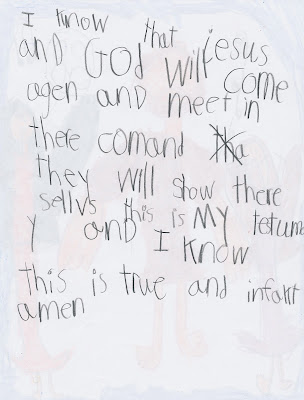 I know that jesus
and God will come
agen and meet in
there comand
they will show there
sellvs this is my testume
y and I know
this is true and infortt
amen